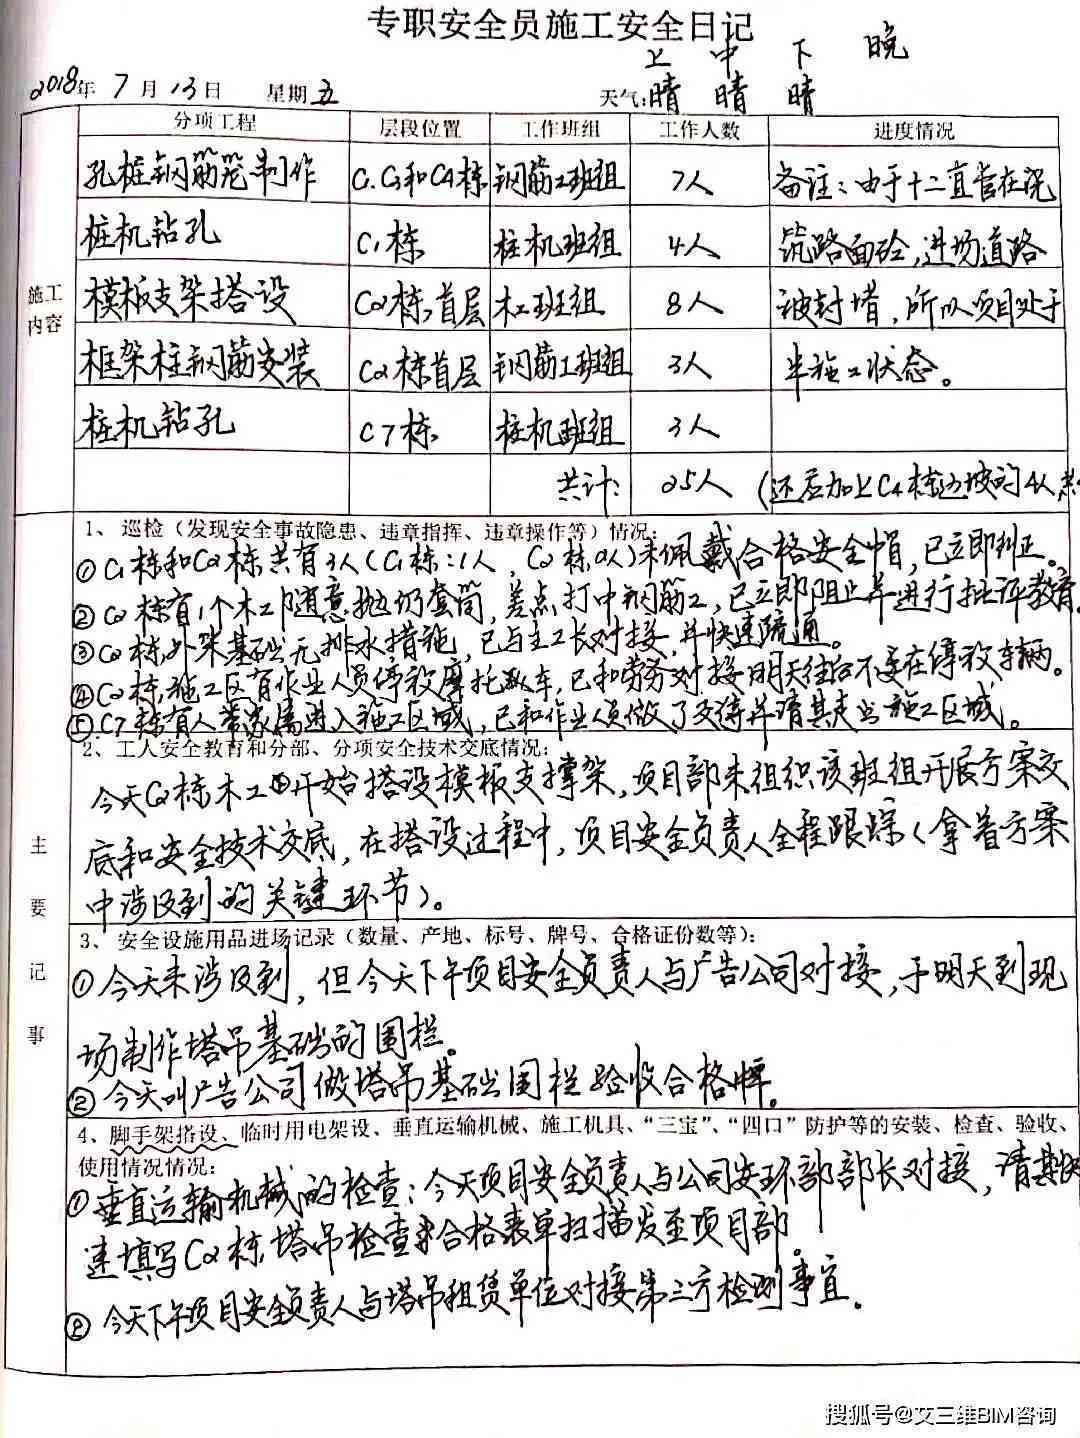 专职安全员施工安全日记
上 中 下 晚
2018年 7月 13日 星期五 天气:晴 晴 晴
分项工程 层段位置 工作班组 工作人数 进度情况
施工内容
孔桩钢筋笼制作 C1.C3和C4栋 钢筋工班组 7人 备注:由于十二直管在浇
桩机钻孔 C1栋 桩机班组 4人 筑路面砼,进场道路
模板支架搭设 C2栋,首层 木工班组 8人 被封堵,所以项目处于
框架柱钢筋安装 C2栋首层 钢筋工班组 3人 半施工状态。
桩机钻孔 C7栋 桩机班组 3人
共计: 25人 (还应加上C4栋边坡的4人
主要记事
1、巡检(发现安全事故隐患、违章指挥、违章操作等)情况:
①C1栋和C2栋共有3人(C1栋:1人,C2栋2人)未佩戴合格安全帽,已立即纠正。
②C2栋有1个木工随意抛扔套筒,差点打中钢筋工,已立即阻止并进行批评教育
③C2栋,外架基础无排水措施,已与主工长对接,并快速疏通。
④C2栋,施工区有作业人员停放摩托车,已和劳务对接明天往后不要在停放车辆。
⑤C7栋有人带家属进入施工区域,已和作业人员做了交待并请其走出施工区域。
2、工人安全教育和分部、分项安全技术交底情况:
今天C2栋木工开始搭设模板支撑架,项目部未组织该班组开展方案交
底和安全技术交底,在搭设过程中,项目安全负责人全程跟踪(拿着方案
中涉及到的关键环节)。
3、安全设施用品进场记录(数量、产地、标号、牌号、合格证份数等):
①今天未涉及到,但今天下午项目安全负责人与广告公司对接,于明天到现
场制作塔吊基础的围栏。
②今天叫广告公司做塔吊基础围栏验收合格牌。
4、脚手架搭设、临时用电架设、垂直运输机械、施工机具、“三宝”、“四口”防护等的安装、检查、验收、
使用情况情况:
①垂直运输机械的检查:今天项目安全负责人与公司安环部部长对接,请其快
速填写C2栋塔吊检查合格表单扫描发至项目部。
②今天下午项目安全负责人与塔吊租赁单位对接第三方检测事宜。
搜狐号@艾三维BIM咨询